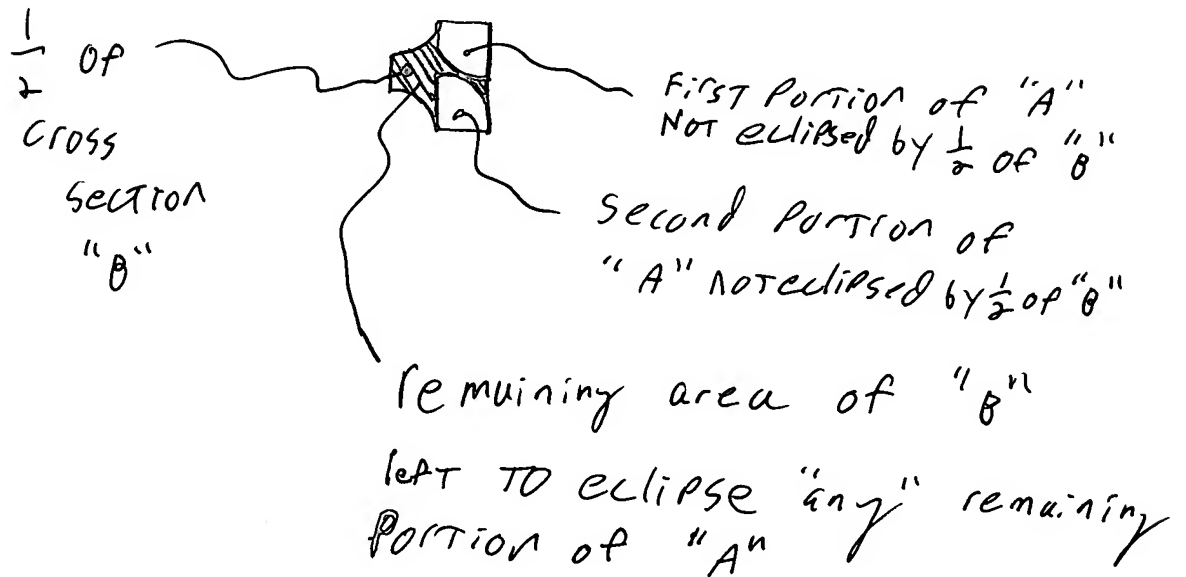 1/2 of
cross
section
"B"
First Portion of "A"
Not eclipsed by 1/2 of "B"
second Portion of
"A" not eclipsed by 1/2 of "B"
remaining area of "B"
left TO eclipse "any" remaining
Portion of "A"